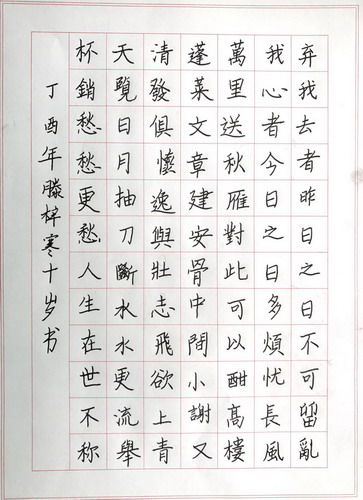 弃我去者昨日之日不可留亂
我心者今日之日多煩忧長風
萬里送秋雁對此可以酣高樓
蓬莱文章建安骨中間小謝又
清發俱懷逸興壯志飛欲上青
天覽日月抽刀斷水水更流舉
杯銷愁愁更愁人生在世不称
丁酉年滕梓寒十岁书